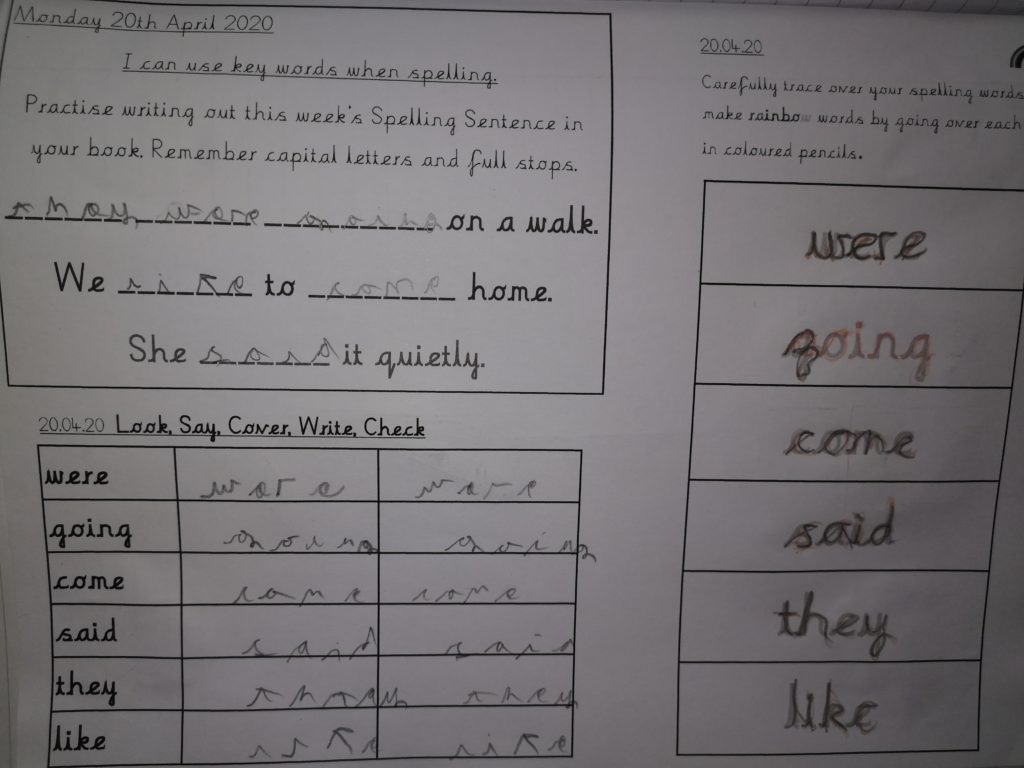 Monday 20th April 2020
I can use key words when spelling.
Practise writing out this week's Spelling Sentence in
your book. Remember capital letters and full stops.
they were going on a walk.
We like to come home.
She said it quietly.
20.04.20 Look, Say, Cover, Write, Check
were were were
going going going
come come come
said said said
they they they
like like like
20.04.20
Carefully trace over your spelling words
make rainbow words by going over each
in coloured pencils.
were
going
come
said
they
like